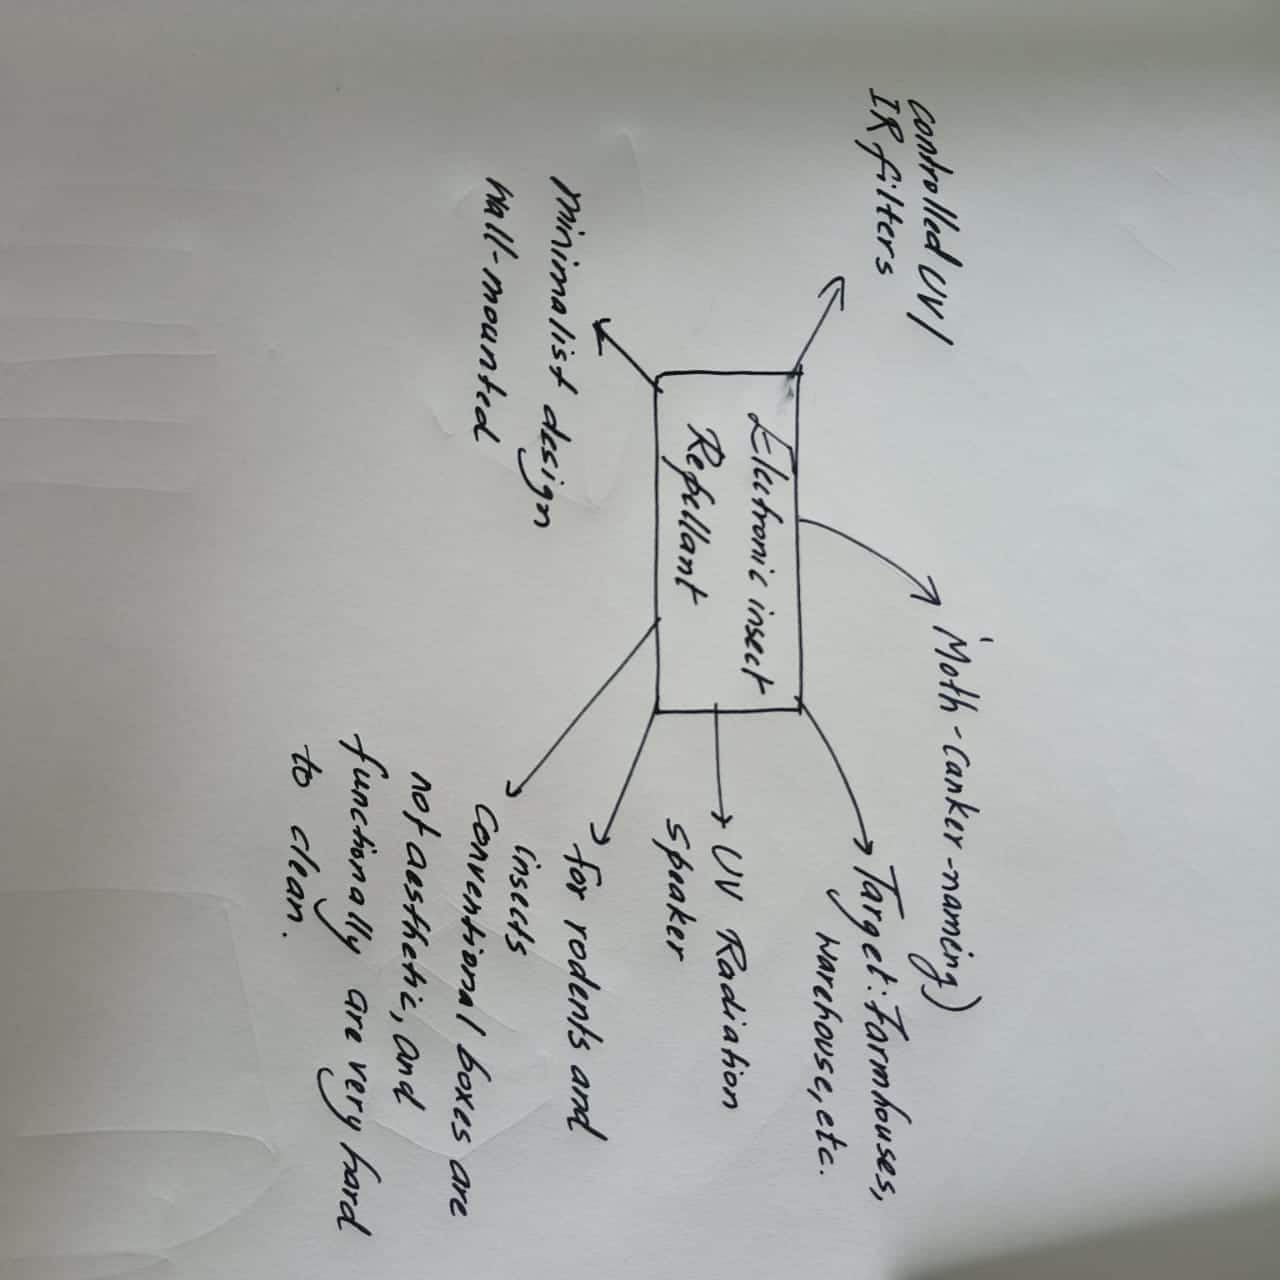 controlled UV/
IR filters
Moth-canker-naming)
Electronic insect
Repellant
minimalist design
wall-mounted
Target: Farmhouses,
warehouse, etc.
UV Radiation
speaker
for rodents and
insects
conventional boxes are
not aesthetic, and
functionally are very hard
to clean.